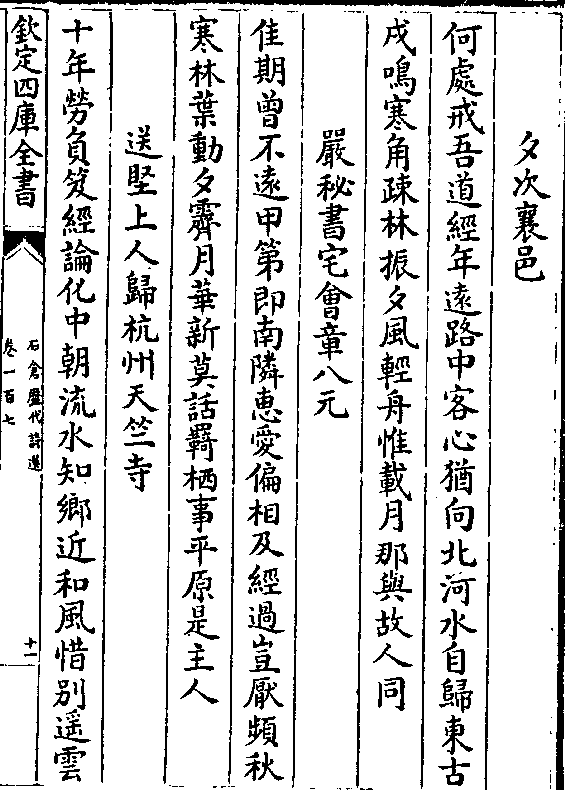 夕次襄邑
何處戒吾道經年遠路中客心猶向北河水自歸東古
戍鳴寒角疎林振夕風輕舟惟載月那與故人同
嚴秘書宅會章八元
佳期曾不遠甲第即南隣惠愛偏相及經過豈厭頻秋
寒林葉動夕霽月華新莫話羇栖事平原是主人
送堅上人歸杭州天竺寺
十年勞負笈經論化中朝流水知鄉近和風惜别遥雲
欽定四庫全書
石倉歷代詩選
卷一百七
十一